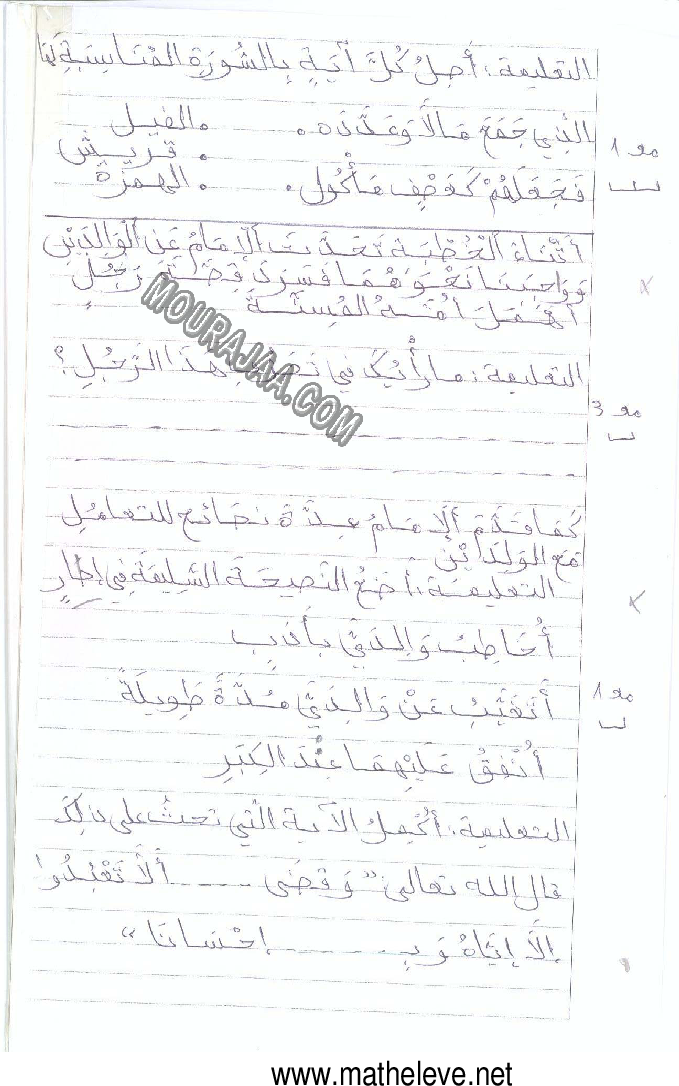 التعليمة: أَصِلُ كُلَّ آيَةٍ بِالسُّورَةِ المُنَاسِبَةِ لَهَا
الذِي جَمَعَ مَالاً وَعَدَّدَه . . الفيل
. قريش
فَجَعَلَهُمْ كَعَصْفٍ مَأْكُول . . الهمزة
مع 1
أَثْنَاءَ الْخُطْبَة تَحَدَّثَ الإِمَامُ عَنِ الْوَالِدَيْنِ
وَوَاجِبَنَا نَحْوَهُمَا فَسَرَدَ قِصَّةَ رَجُلٍ
أَهْمَلَ أُمَّهُ المُسِنَّةَ
التعليمة: ما رَأْيُكَ فِي تَصَرُّفِ هَذَا الرَّجُلِ؟
مع 3
كَمَا قَدَّمَ الإمَامُ عِدَّةَ نَصَائح للتعامُلِ
مَعَ الوَالِدَيْنِ
التعليمة: أَضَعُ النَّصِيحَةَ السَّلِيمَةَ فِي إِطَارٍ
أُخَاطِبُ وَالِدَيَّ بِأَدَبٍ
أَتَغَيَّبُ عَنْ وَالِدَيَّ مُدَّةً طَوِيلَةً
مع 1
أُنْفِقُ عَلَيْهِمَا عِنْدَ الكِبَرِ
التعليمة: أُكْمِلُ الآية الَّتِي تحثُّ على ذلِكَ
قال الله تعالى "وَقَضَى ------ أَلَّا تَعْبُدُوا
إِلَّا إِيَّاهُ وَبِـ ------ إِحْسَانًا"
MOURAJAA.COM
www.matheleve.net